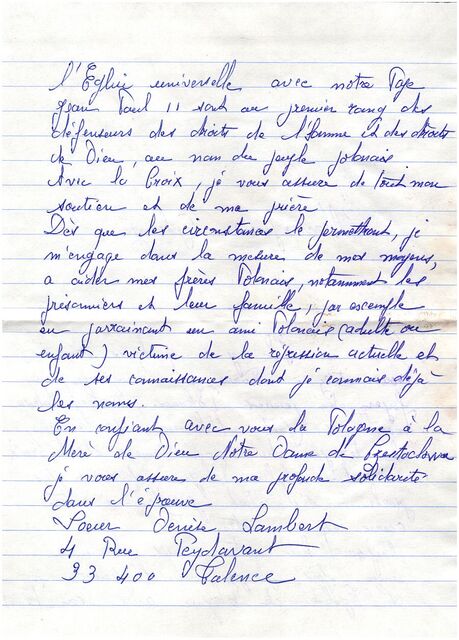 l'Eglise universelle avec notre Pape
Jean Paul II sont au premier rang des
défenseurs des droits de l'homme et des droits
de Dieu, au nom du peuple polonais
Avec la Croix, je vous assure de tout mon
soutien et de ma prière
Dès que les circonstances le permettront, je
m'engage dans la mesure de mes moyens,
a aider mes frères Polonais, notamment les
prisonniers et leur famille, par exemple
en parrainant un ami Polonais (adulte ou
enfant) victime de la répression actuelle et
de ses connaissances dont je connais déjà
les noms.
En confiant avec vous la Pologne à la
Mère de Dieu Notre Dame de
je vous assure de ma profonde solidarité
dans l'épreuve
Soeur Denise Lambert
4 Rue Peydavant
33 400 Talence